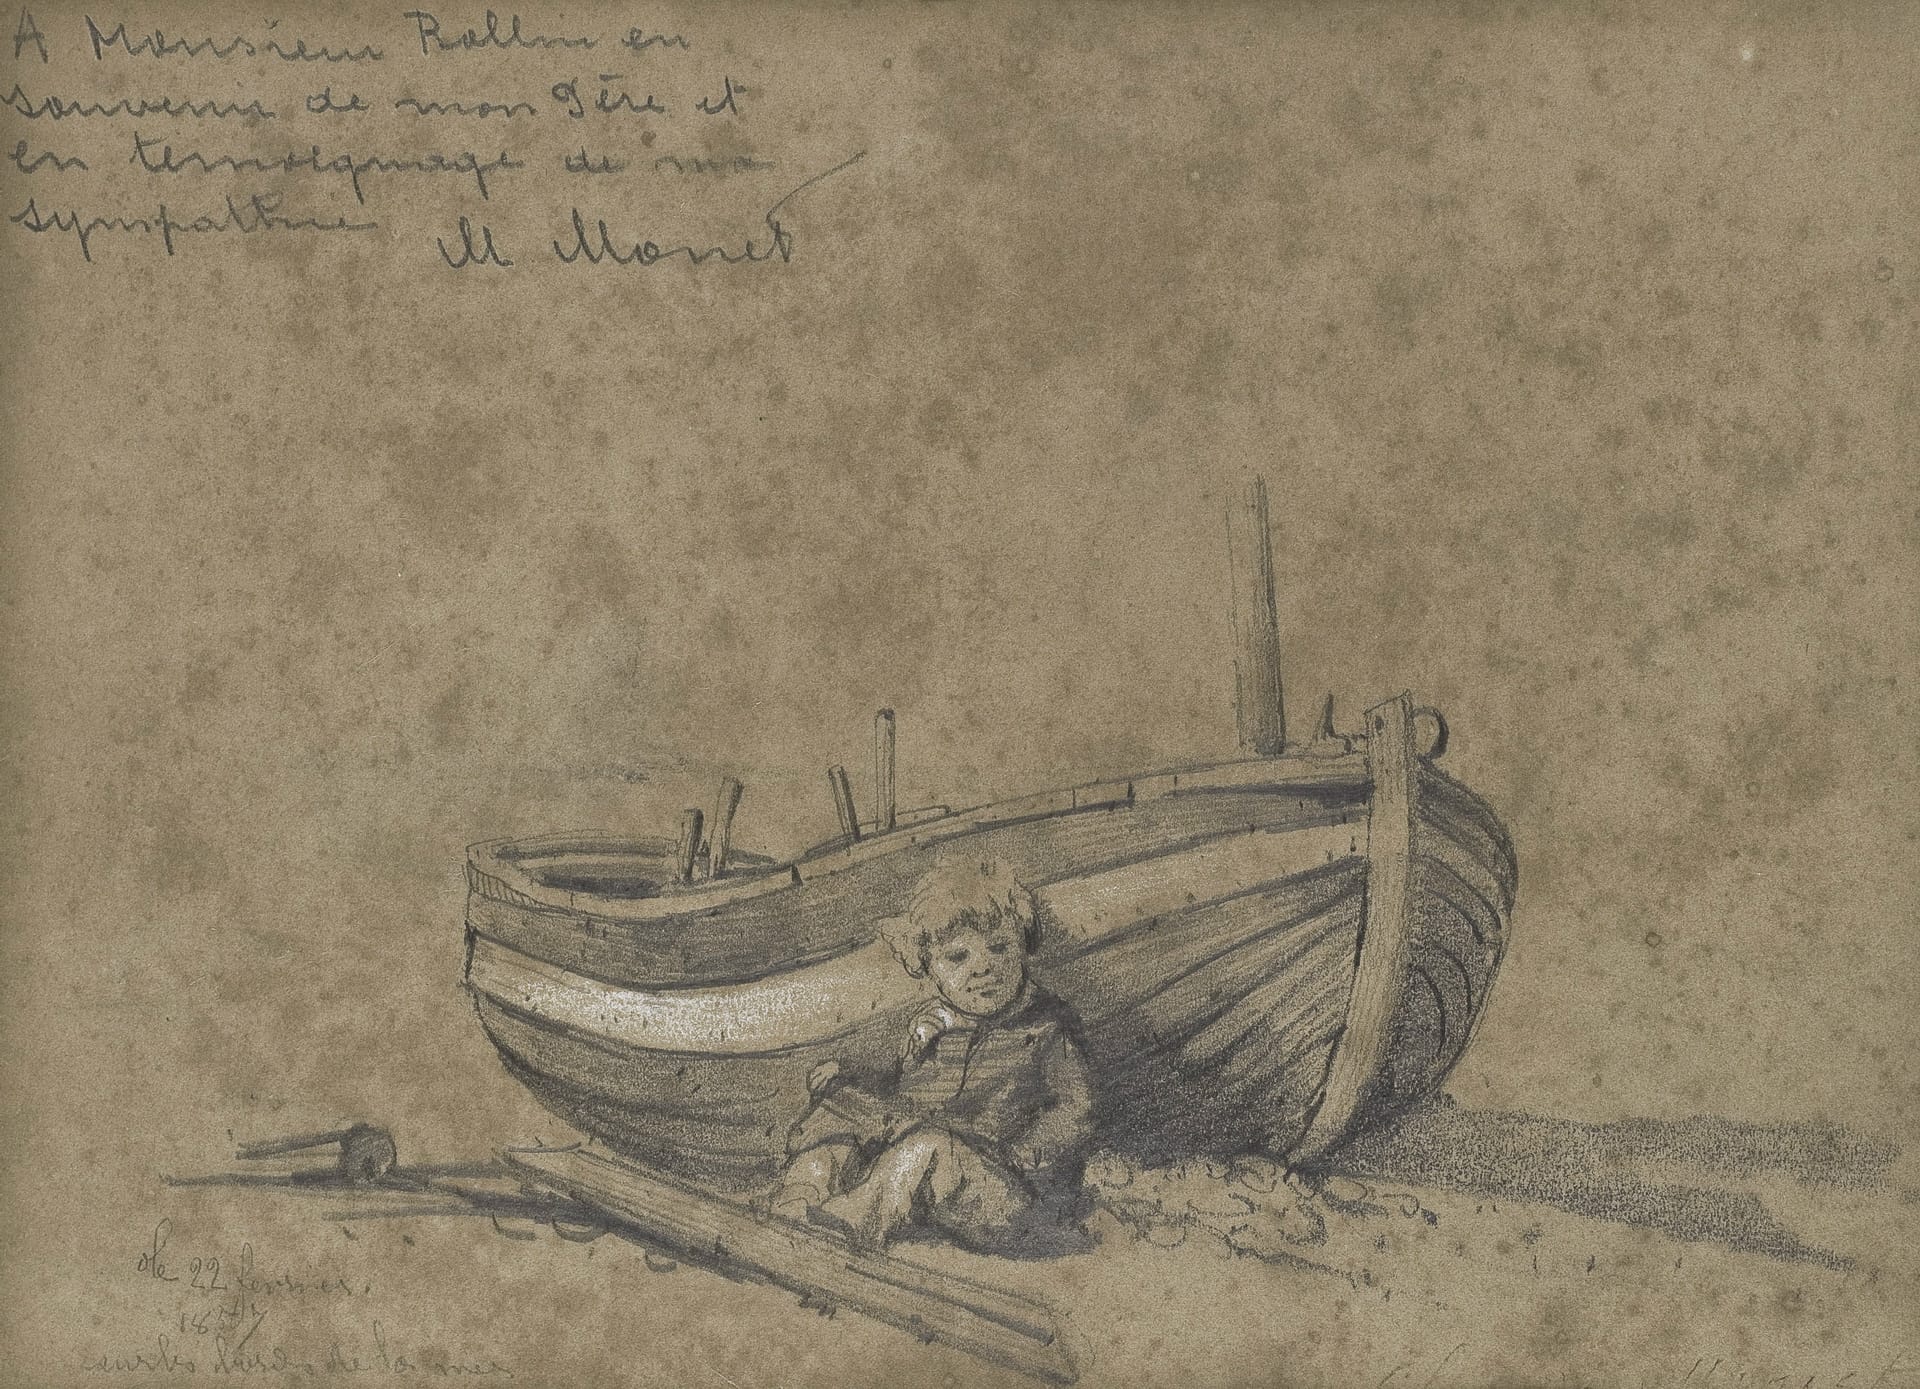 A Monsieur Rollin en
souvenir de mon Père et
en temoignage de ma
sympathie
M Monet
le 22 fevrier.
1857
sur les bords de la mer